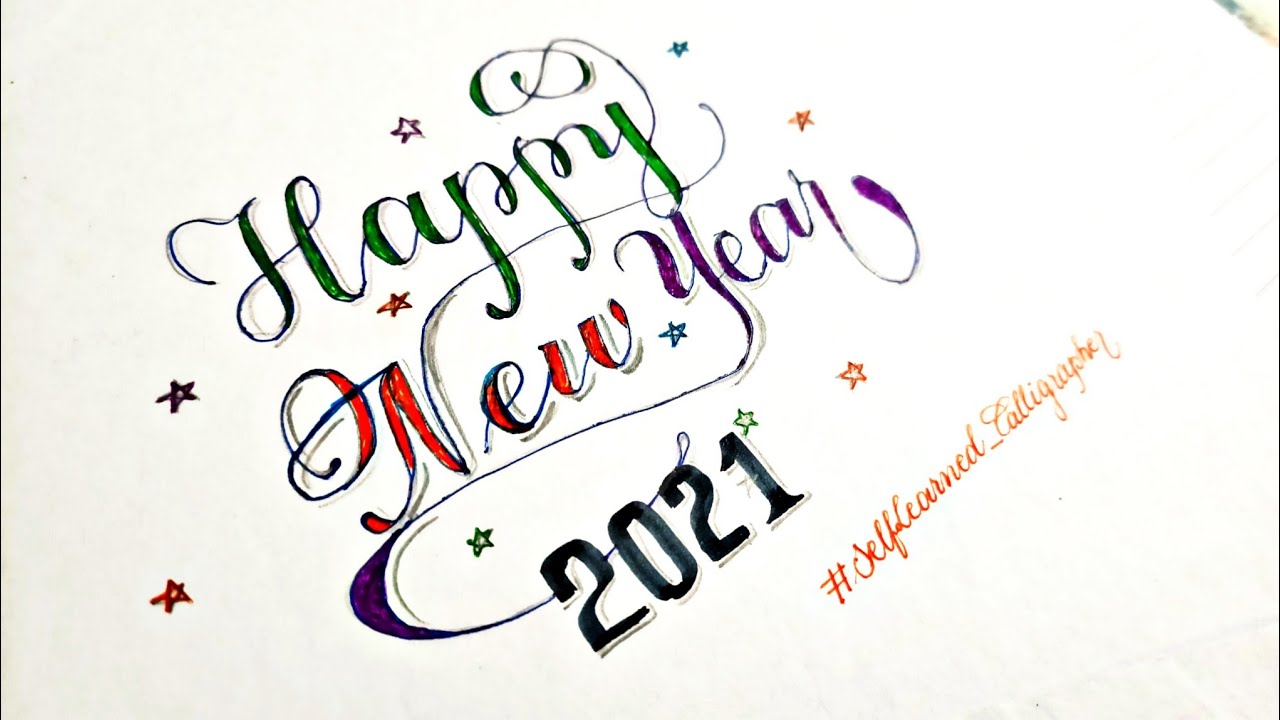 Happy
New Year
2021
#SelfLearned_Calligrapher